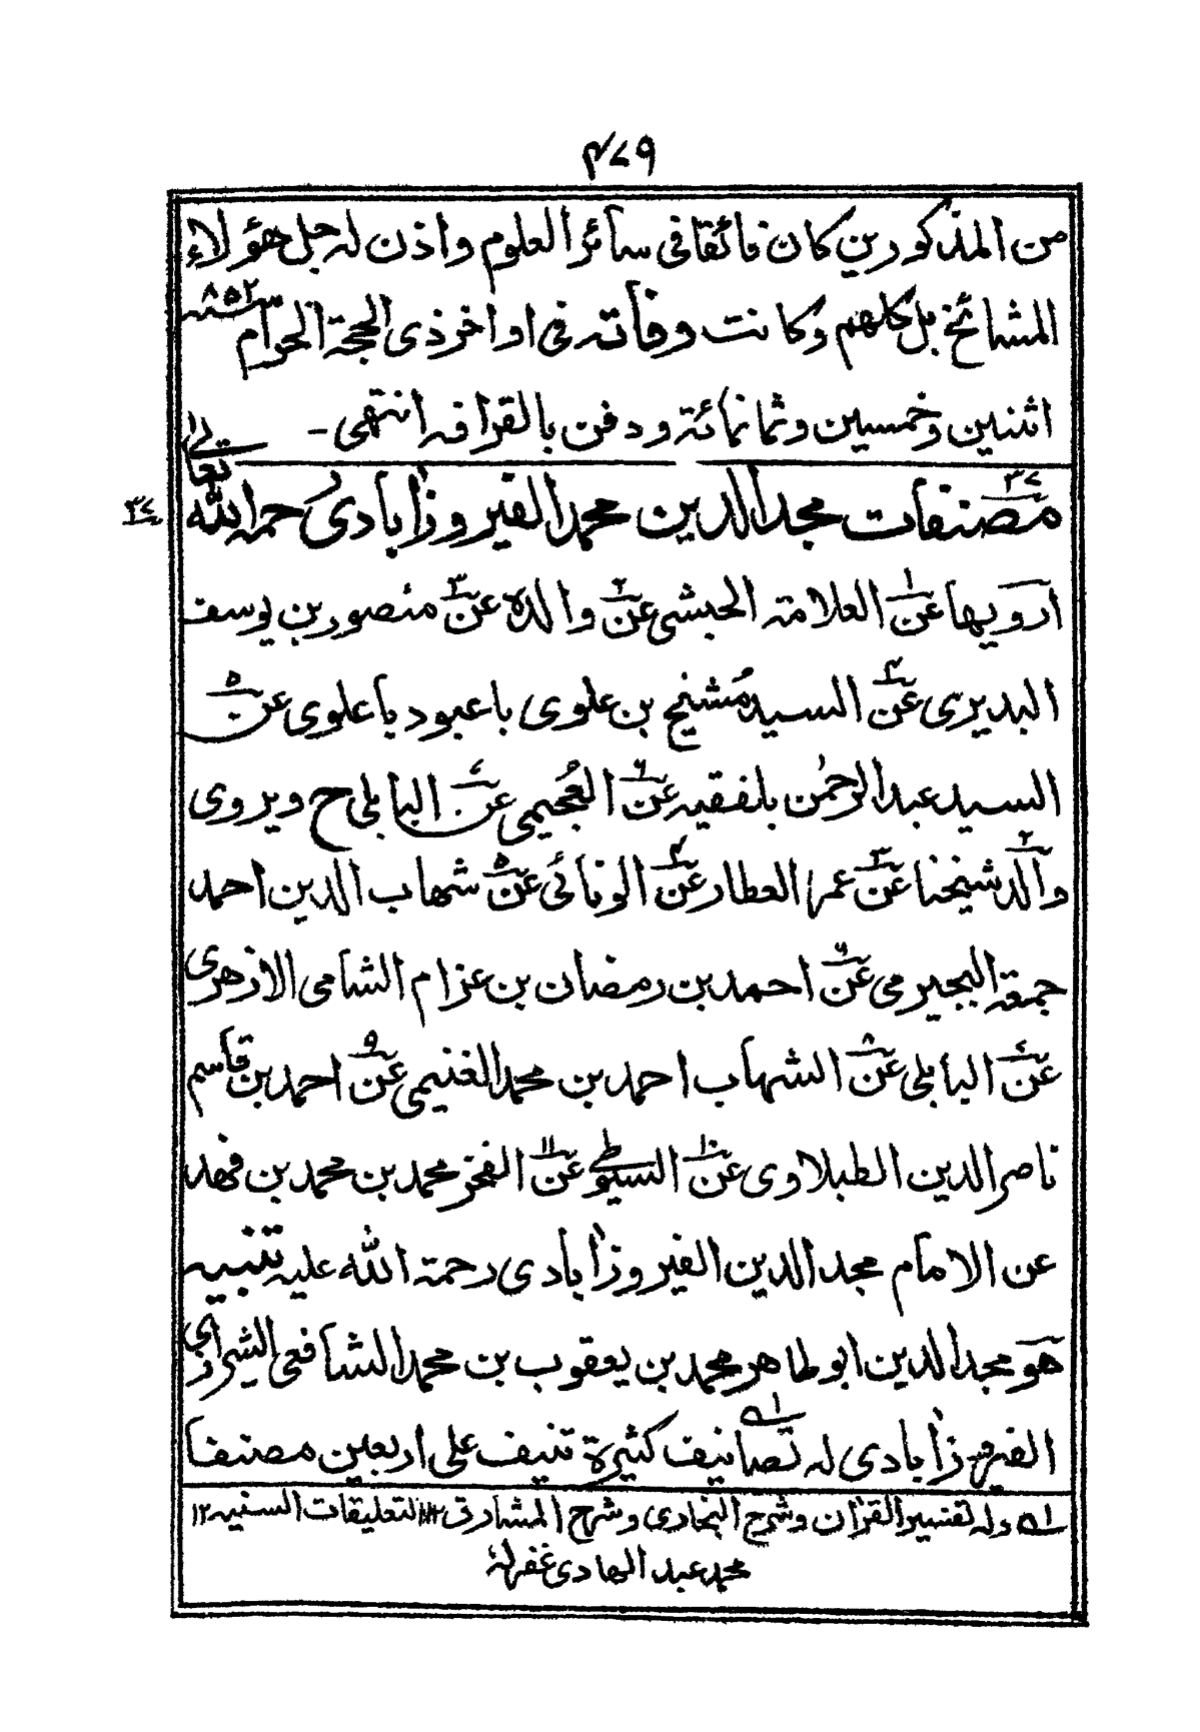 ۴۷۹
من المذكورين كان فائقا في سائر العلوم واذن له جل هؤلاء
المشائخ بل كلهم وكانت وفاته في اواخر ذى الحجة الحرام سنة ۸۵۲
اثنين وخمسين وثمانمائة ودفن بالقرافه انتهى -
۳۷ مصنفات مجد الدين محمد الفيروزآبادى رحمه الله تعالى
۳۷
ارويها عن۱ العلامة الحبشى عن۲ والده عن۳ منصور بن يوسف
البديرى عن۴ السيد مُشيخ بن علوى باعبود باعلوى عن۵
السيد عبد الرحمٰن بلفقيه عن۶ العُجيمى عن۷ البابلى ح ويروى
والد۲ شيخنا عن۳ عمر العطار عن۴ الونائى عن۵ شهاب الدين احمد
جمعة البجيرمى عن۶ احمد بن رمضان بن عزام الشامى الازهرى
عن۷ البابلى عن۸ الشهاب احمد بن محمد الغنيمى عن۹ احمد بن قاسم
ناصر الدين الطبلاوى عن۱۰ السيوطى عن۱۱ الفخر محمد بن محمد بن فهد
عن الامام مجد الدين الفيروزآبادى رحمة الله عليه تنبيه
هو مجد الدين ابو طاهر محمد بن يعقوب بن محمد الشافعى الشيرازى
الفيروزآبادى له تصانيف۱ه كثيرة تنيف على اربعين مصنفا
۱ه وله تفسير القرآن وشرح البخارى وشرح المشارق ۱۲ التعليقات السنيه ۱۲
محمد عبد الهادى غفرلهٗ